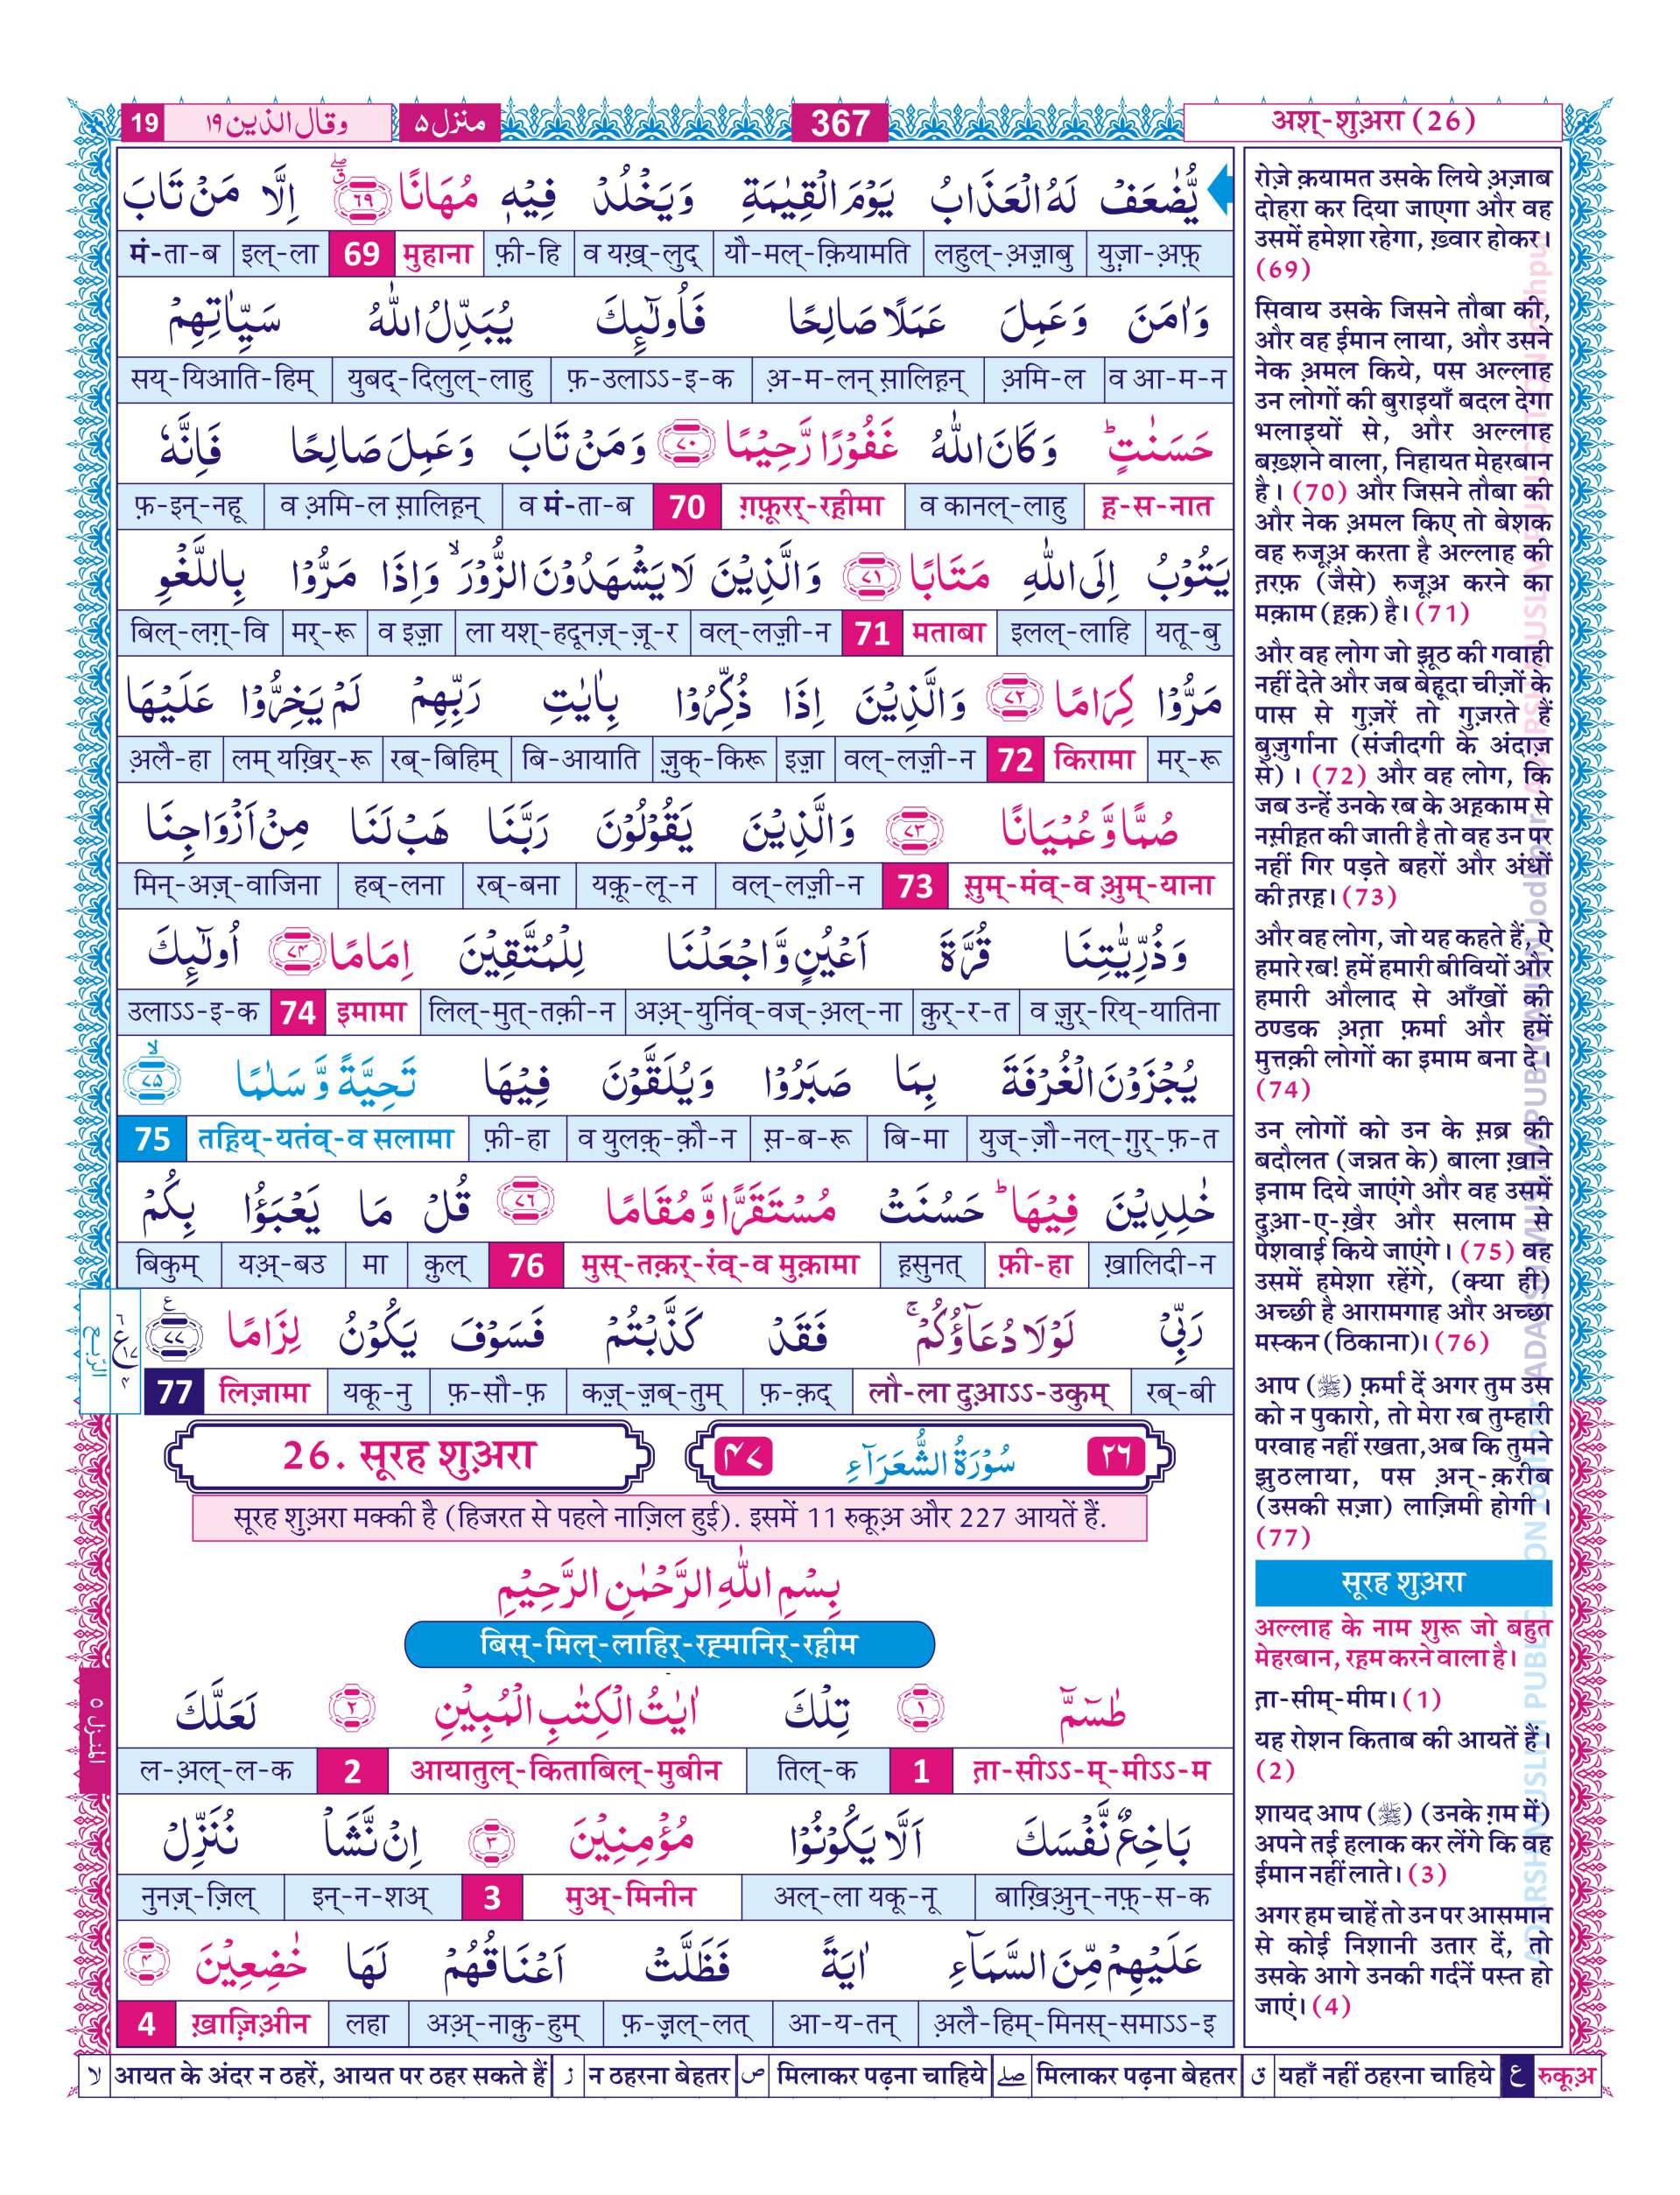 19 وقال الذین ۱۹ منزل ۵ 367 अश्-शुअ़रा (26)
یُّضٰعَفْ لَهُ الْعَذَابُ یَوْمَ الْقِیٰمَةِ وَیَخْلُدْ فِیْهٖ مُهَانًا ۶۹ اِلَّا مَنْ تَابَ
युज़ा-अ़फ़् लहुल्-अ़ज़ाबु यौ-मल्-क़ियामति व यख़्-लुद् फ़ी-हि मुहाना 69 इल्-ला मं-ता-ब
وَاٰمَنَ وَعَمِلَ عَمَلًا صَالِحًا فَاُولٰٓئِكَ یُبَدِّلُ اللّٰهُ سَیِّاٰتِهِمْ
व आ-म-न अ़मि-ल अ़-म-लन् स़ालिह़न् फ़-उलाऽऽ-इ-क युबद्-दिलुल्-लाहु सय्-यिआति-हिम्
حَسَنٰتٍ ؕ وَكَانَ اللّٰهُ غَفُوْرًا رَّحِیْمًا ۷۰ وَمَنْ تَابَ وَعَمِلَ صَالِحًا فَاِنَّهٗ
ह़-स-नात व कानल्-लाहु ग़फ़ूरर्-रह़ीमा 70 व मं-ता-ब व अ़मि-ल स़ालिह़न् फ़-इन्-नहू
یَتُوْبُ اِلَی اللّٰهِ مَتَابًا ۷۱ وَالَّذِیْنَ لَا یَشْهَدُوْنَ الزُّوْرَ ۙ وَاِذَا مَرُّوْا بِاللَّغْوِ
यतू-बु इलल्-लाहि मताबा 71 वल्-लज़ी-न ला यश्-हदूनज़्-ज़ू-र व इज़ा मर्-रू बिल्-लग़्-वि
مَرُّوْا كِرَامًا ۷۲ وَالَّذِیْنَ اِذَا ذُكِّرُوْا بِاٰیٰتِ رَبِّهِمْ لَمْ یَخِرُّوْا عَلَیْهَا
मर्-रू किरामा 72 वल्-लज़ी-न इज़ा ज़ुक्-किरू बि-आयाति रब्-बिहिम् लम् यख़िर्-रू अ़लै-हा
صُمًّا وَّعُمْیَانًا ۷۳ وَالَّذِیْنَ یَقُوْلُوْنَ رَبَّنَا هَبْ لَنَا مِنْ اَزْوَاجِنَا
स़ुम्-मंव्-व अ़ुम्-याना 73 वल्-लज़ी-न यक़ू-लू-न रब्-बना हब्-लना मिन्-अज़्-वाजिना
وَذُرِّیّٰتِنَا قُرَّةَ اَعْیُنٍ وَّاجْعَلْنَا لِلْمُتَّقِیْنَ اِمَامًا ۷۴ اُولٰٓئِكَ
व ज़ुर्-रिय्-यातिना क़ुर्-र-त अअ़्-युनिंव्-वज्-अ़ल्-ना लिल्-मुत्-तक़ी-न इमामा 74 उलाऽऽ-इ-क
یُجْزَوْنَ الْغُرْفَةَ بِمَا صَبَرُوْا وَیُلَقَّوْنَ فِیْهَا تَحِیَّةً وَّسَلٰمًا ۷۵ ۙ
युज्-ज़ौ-नल्-ग़ुर्-फ़-त बि-मा स़-ब-रू व युलक़्-क़ौ-न फ़ी-हा तह़िय्-यतंव्-व सलामा 75
خٰلِدِیْنَ فِیْهَا ؕ حَسُنَتْ مُسْتَقَرًّا وَّمُقَامًا ۷۶ قُلْ مَا یَعْبَؤُا بِكُمْ
ख़ालिदी-न फ़ी-हा ह़सुनत् मुस्-तक़र्-रंव्-व मुक़ामा 76 क़ुल् मा यअ़्-बउ बिकुम्
رَبِّیْ لَوْلَا دُعَآؤُكُمْ ۚ فَقَدْ كَذَّبْتُمْ فَسَوْفَ یَكُوْنُ لِزَامًا ۷۷
रब्-बी लौ-ला दुआ़ऽऽ-उकुम् फ़-क़द् कज़्-ज़ब्-तुम् फ़-सौ-फ़ यकू-नु लिज़ामा 77
الرّبع ع ۶ ۱۷ ۴
26. सूरह शुअ़रा ۴۷ سُوْرَةُ الشُّعَرَآءِ ۲۶
सूरह शुअ़रा मक्की है (हिजरत से पहले नाज़िल हुई). इसमें 11 रुकूअ़ और 227 आयतें हैं.
بِسْمِ اللّٰهِ الرَّحْمٰنِ الرَّحِیْمِ
बिस्-मिल्-लाहिर्-रह़्मानिर्-रह़ीम
طٰسٓمّٓ ۱ تِلْكَ اٰیٰتُ الْكِتٰبِ الْمُبِیْنِ ۲ لَعَلَّكَ
त़ा-सीऽऽ-म्-मीऽऽ-म 1 तिल्-क आयातुल्-किताबिल्-मुबीन 2 ल-अ़ल्-ल-क
المنزل ۵
بَاخِعٌ نَّفْسَكَ اَلَّا یَكُوْنُوْا مُؤْمِنِیْنَ ۳ اِنْ نَّشَاْ نُنَزِّلْ
बाख़िअ़ुन्-नफ़्-स-क अल्-ला यकू-नू मुअ्-मिनीन 3 इन्-न-शअ् नुनज़्-ज़िल्
عَلَیْهِمْ مِّنَ السَّمَآءِ اٰیَةً فَظَلَّتْ اَعْنَاقُهُمْ لَهَا خٰضِعِیْنَ ۴
अ़लै-हिम्-मिनस्-समाऽऽ-इ आ-य-तन् फ़-ज़ल्-लत् अअ़्-नाक़ु-हुम् लहा ख़ाज़िअ़ीन 4
रोज़े क़यामत उसके लिये अ़ज़ाब
दोहरा कर दिया जाएगा और वह
उसमें हमेशा रहेगा, ख़्वार होकर।
(69)
सिवाय उसके जिसने तौबा की,
और वह ईमान लाया, और उसने
नेक अ़मल किये, पस अल्लाह
उन लोगों की बुराइयाँ बदल देगा
भलाइयों से, और अल्लाह
बख़्शने वाला, निहायत मेहरबान
है। (70) और जिसने तौबा की
और नेक अ़मल किए तो बेशक
वह रुजूअ़ करता है अल्लाह की
त़रफ़ (जैसे) रुजूअ़ करने का
मक़ाम (ह़क़) है। (71)
और वह लोग जो झूठ की गवाही
नहीं देते और जब बेहूदा चीज़ों के
पास से गुज़रें तो गुज़रते हैं
बुज़ुर्गाना (संजीदगी के अंदाज़
से) । (72) और वह लोग, कि
जब उन्हें उनके रब के अह़काम से
नस़ीह़त की जाती है तो वह उन पर
नहीं गिर पड़ते बहरों और अंधों
की त़रह। (73)
और वह लोग, जो यह कहते हैं, ऐ
हमारे रब! हमें हमारी बीवियों और
हमारी औलाद से आँखों की
ठण्डक अ़त़ा फ़र्मा और हमें
मुत्तक़ी लोगों का इमाम बना दे।
(74)
उन लोगों को उन के स़ब्र की
बदौलत (जन्नत के) बाला ख़ाने
इनाम दिये जाएंगे और वह उसमें
दुआ़-ए-ख़ैर और सलाम से
पेशवाई किये जाएंगे। (75) वह
उसमें हमेशा रहेंगे, (क्या ही)
अच्छी है आरामगाह और अच्छा
मस्कन (ठिकाना)। (76)
आप (ﷺ) फ़र्मा दें अगर तुम उस
को न पुकारो, तो मेरा रब तुम्हारी
परवाह नहीं रखता,अब कि तुमने
झुठलाया, पस अ़न्-क़रीब
(उसकी सज़ा) लाज़िमी होगी ।
(77)
सूरह शुअ़रा
अल्लाह के नाम शुरू जो बहुत
मेहरबान, रह़म करने वाला है।
त़ा-सीम्-मीम। (1)
यह रोशन किताब की आयतें हैं।
(2)
शायद आप (ﷺ) (उनके ग़म में)
अपने तई हलाक कर लेंगे कि वह
ईमान नहीं लाते। (3)
अगर हम चाहें तो उन पर आसमान
से कोई निशानी उतार दें, तो
उसके आगे उनकी गर्दनें पस्त हो
जाएं। (4)
لا आयत के अंदर न ठहरें, आयत पर ठहर सकते हैं ز न ठहरना बेहतर ص मिलाकर पढ़ना चाहिये صلے मिलाकर पढ़ना बेहतर ق यहाँ नहीं ठहरना चाहिये ع रुकूअ़